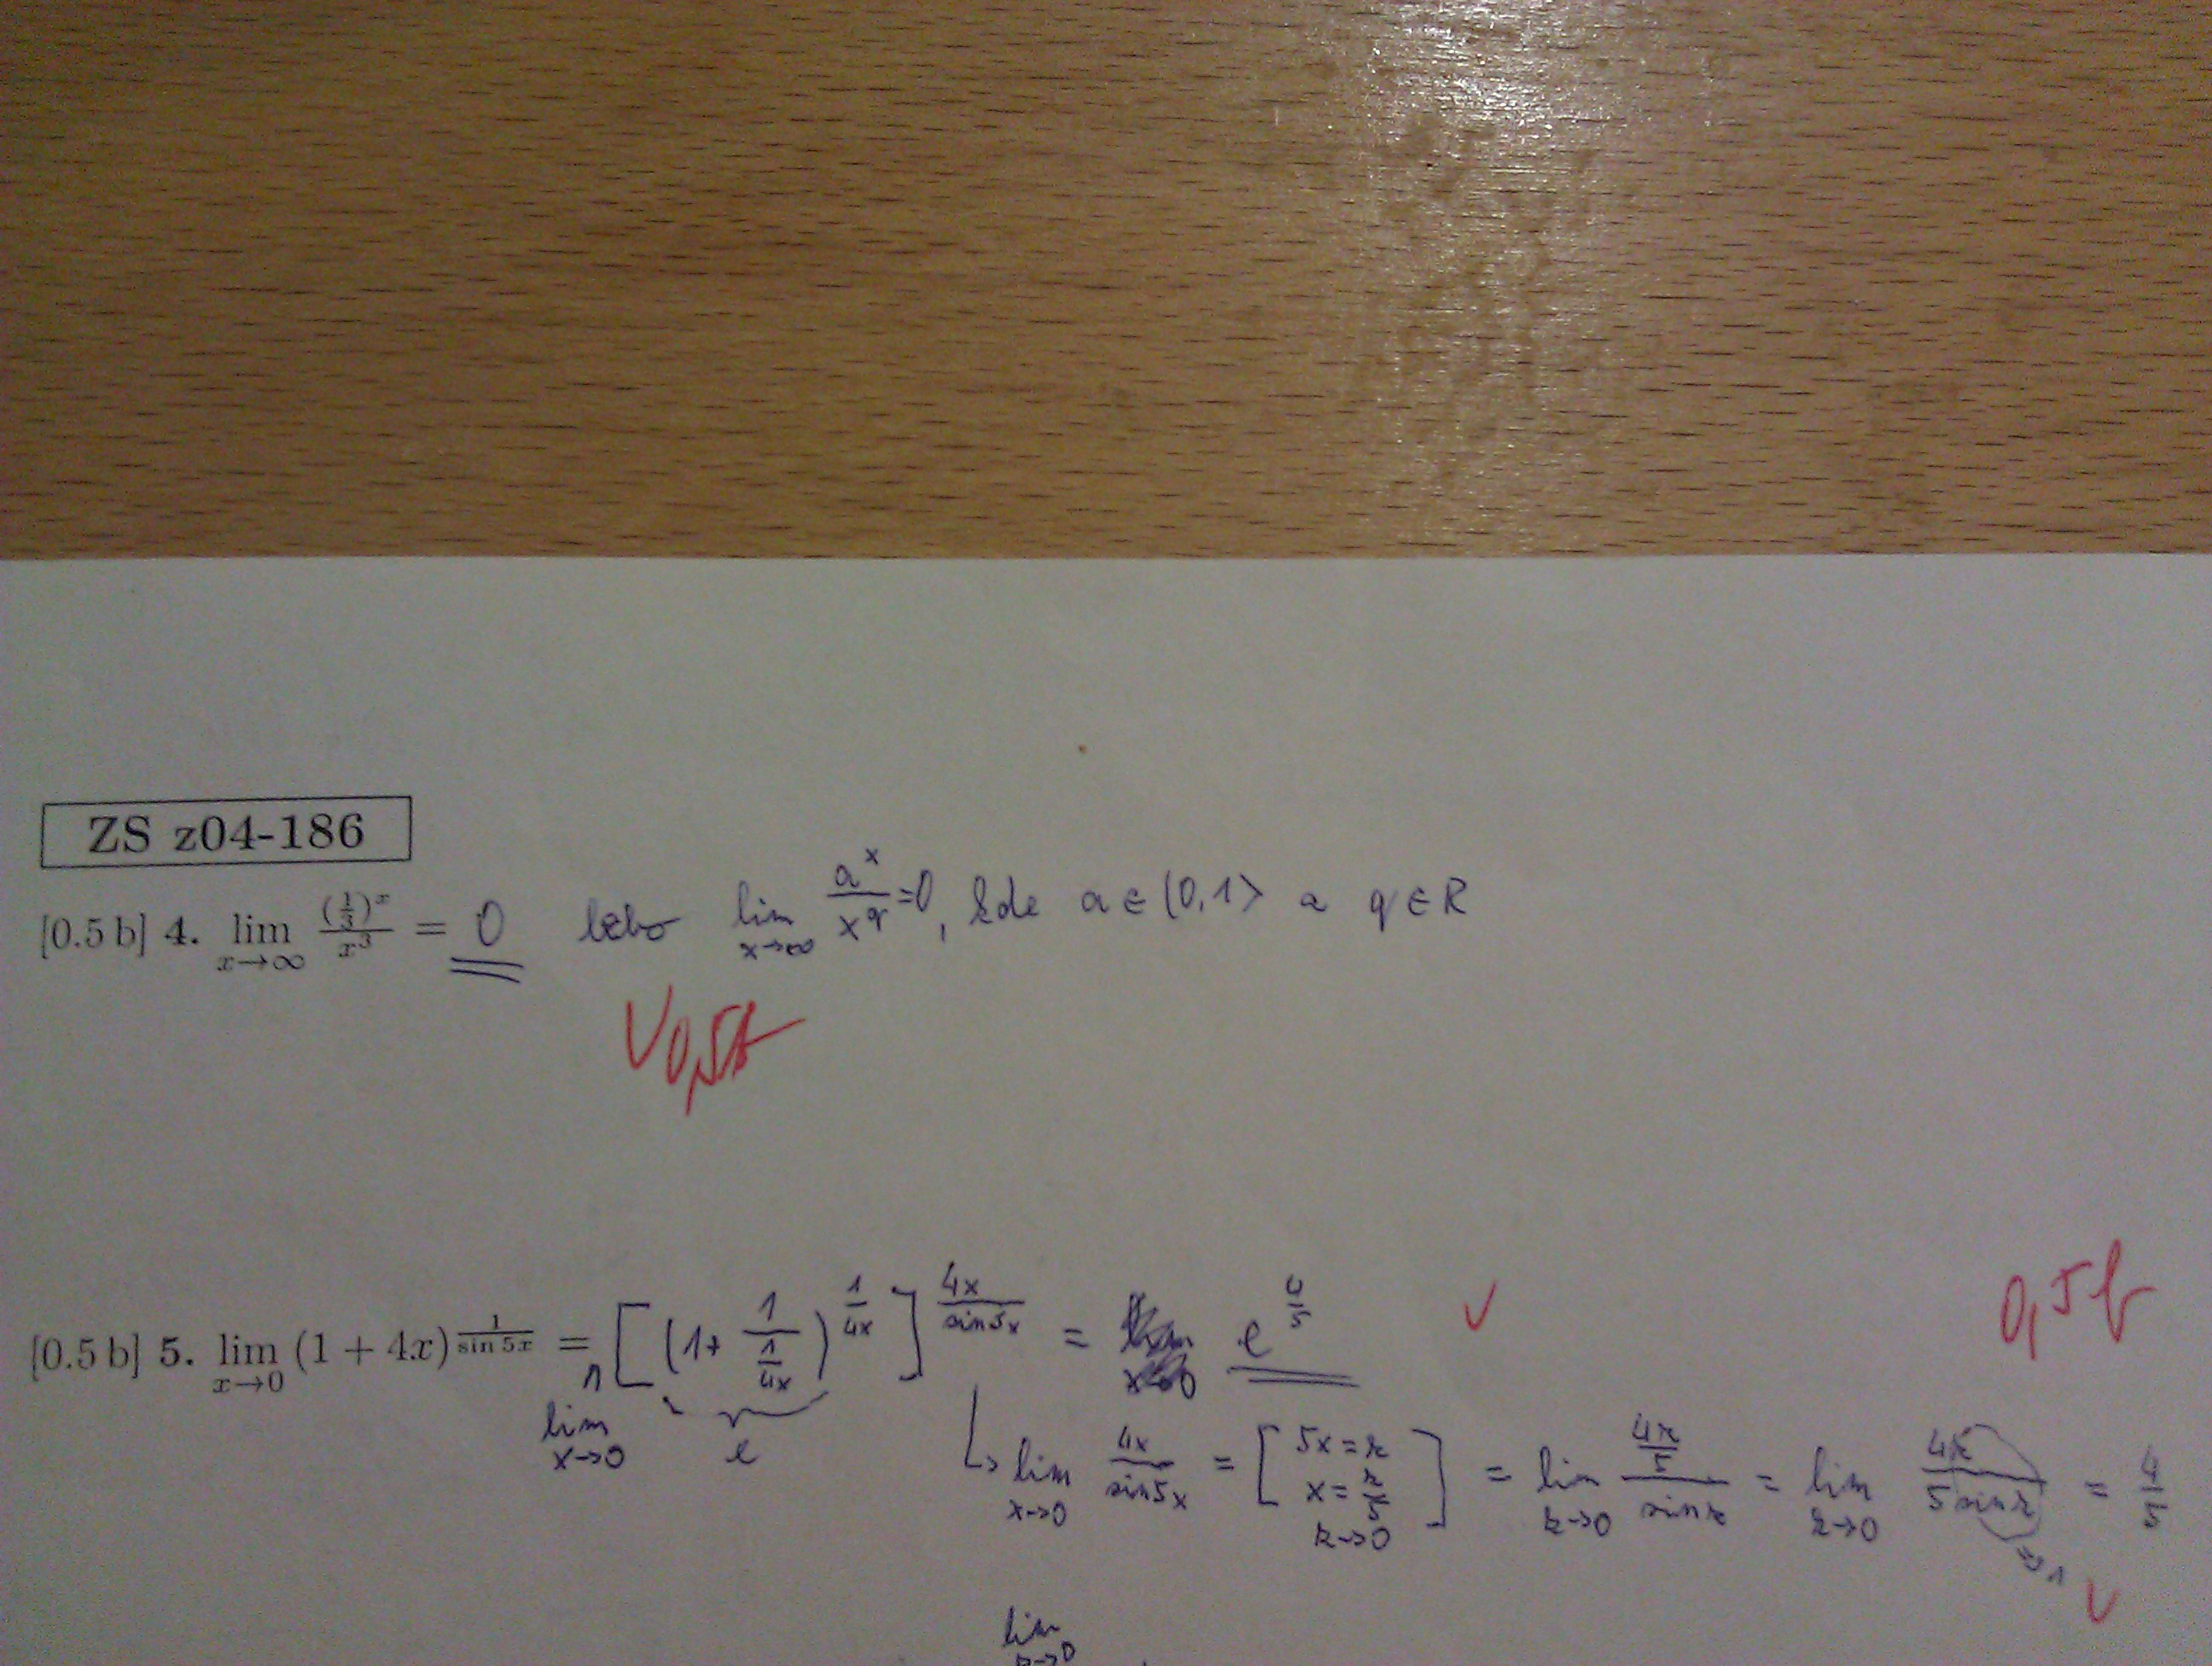 ZS z04-186
[0.5 b] 4. lim x→∞ (1/3)^x / x^3 = 0 lebo lim x→∞ a^x / x^q = 0, kde a ∈ (0,1> a q ∈ R
V 0,5b
[0.5 b] 5. lim x→0 (1 + 4x)^(1/sin 5x) = lim x→0 [(1 + 1/(1/4x))^(1/4x)]^(4x/sin5x) = e^(4/5) V 0,5b
e
↳ lim x→0 4x/sin5x = [5x = z x = z/5 z→0] = lim z→0 (4z/5)/sin z = lim z→0 4z/(5 sin z) = 4/5
⇒ 1 V
lim z→0